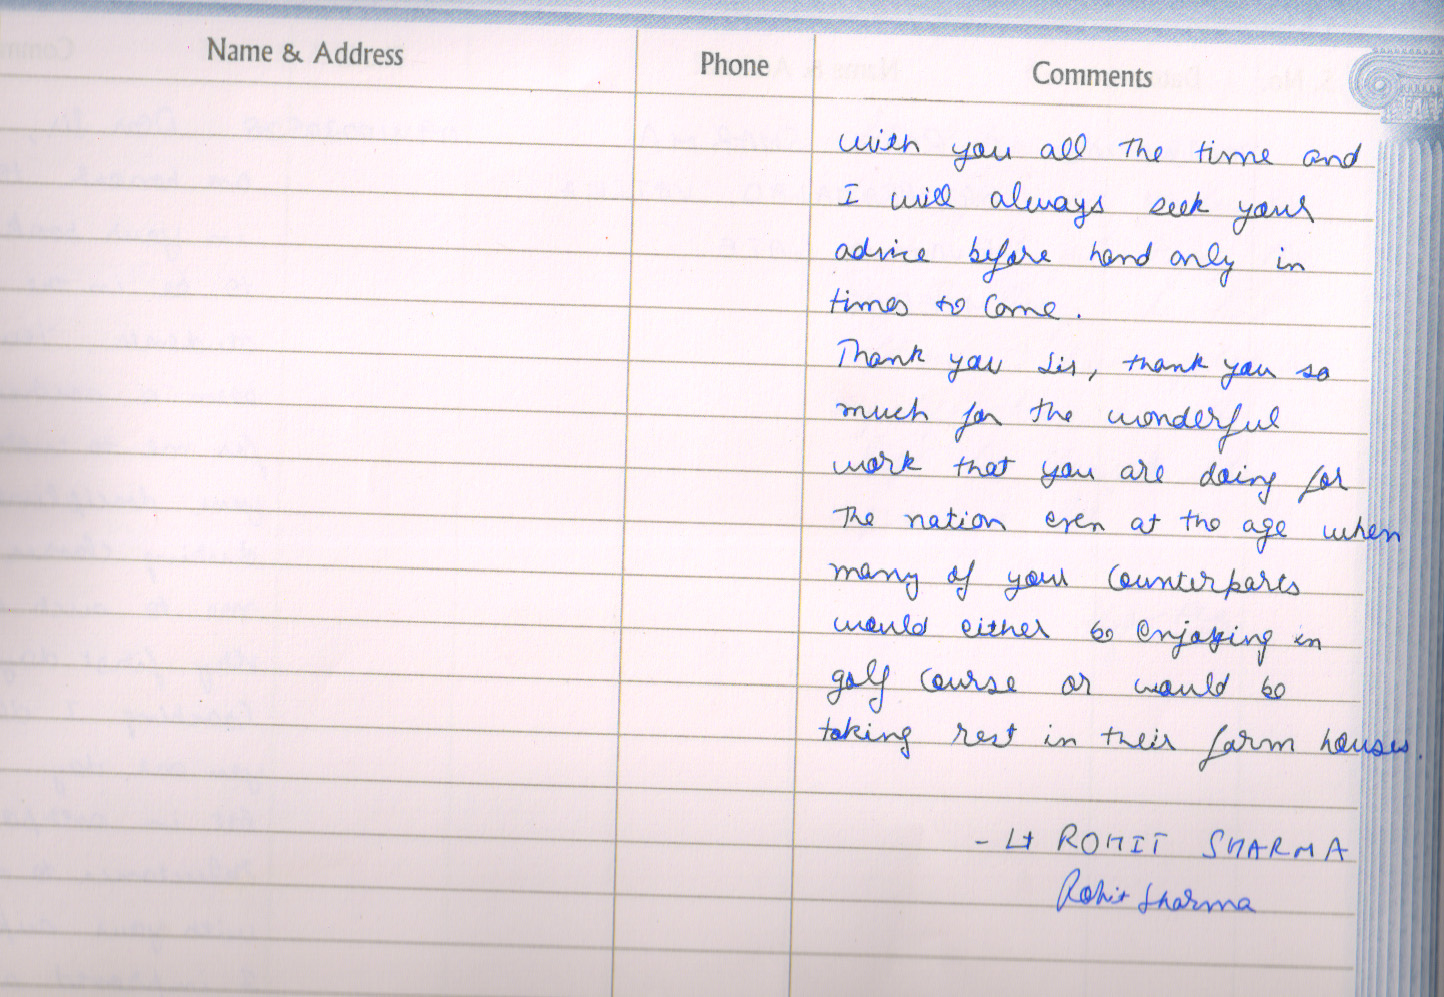 Name & Address Phone Comments
with you all the time and
I will always seek your
advice before hand only in
times to come.
Thank you Sir, thank you so
much for the wonderful
work that you are doing for
the nation even at the age when
many of your counterparts
would either be enjoying in
golf course or would be
taking rest in their farm houses.
- Lt ROHIT SHARMA
Rohit Sharma